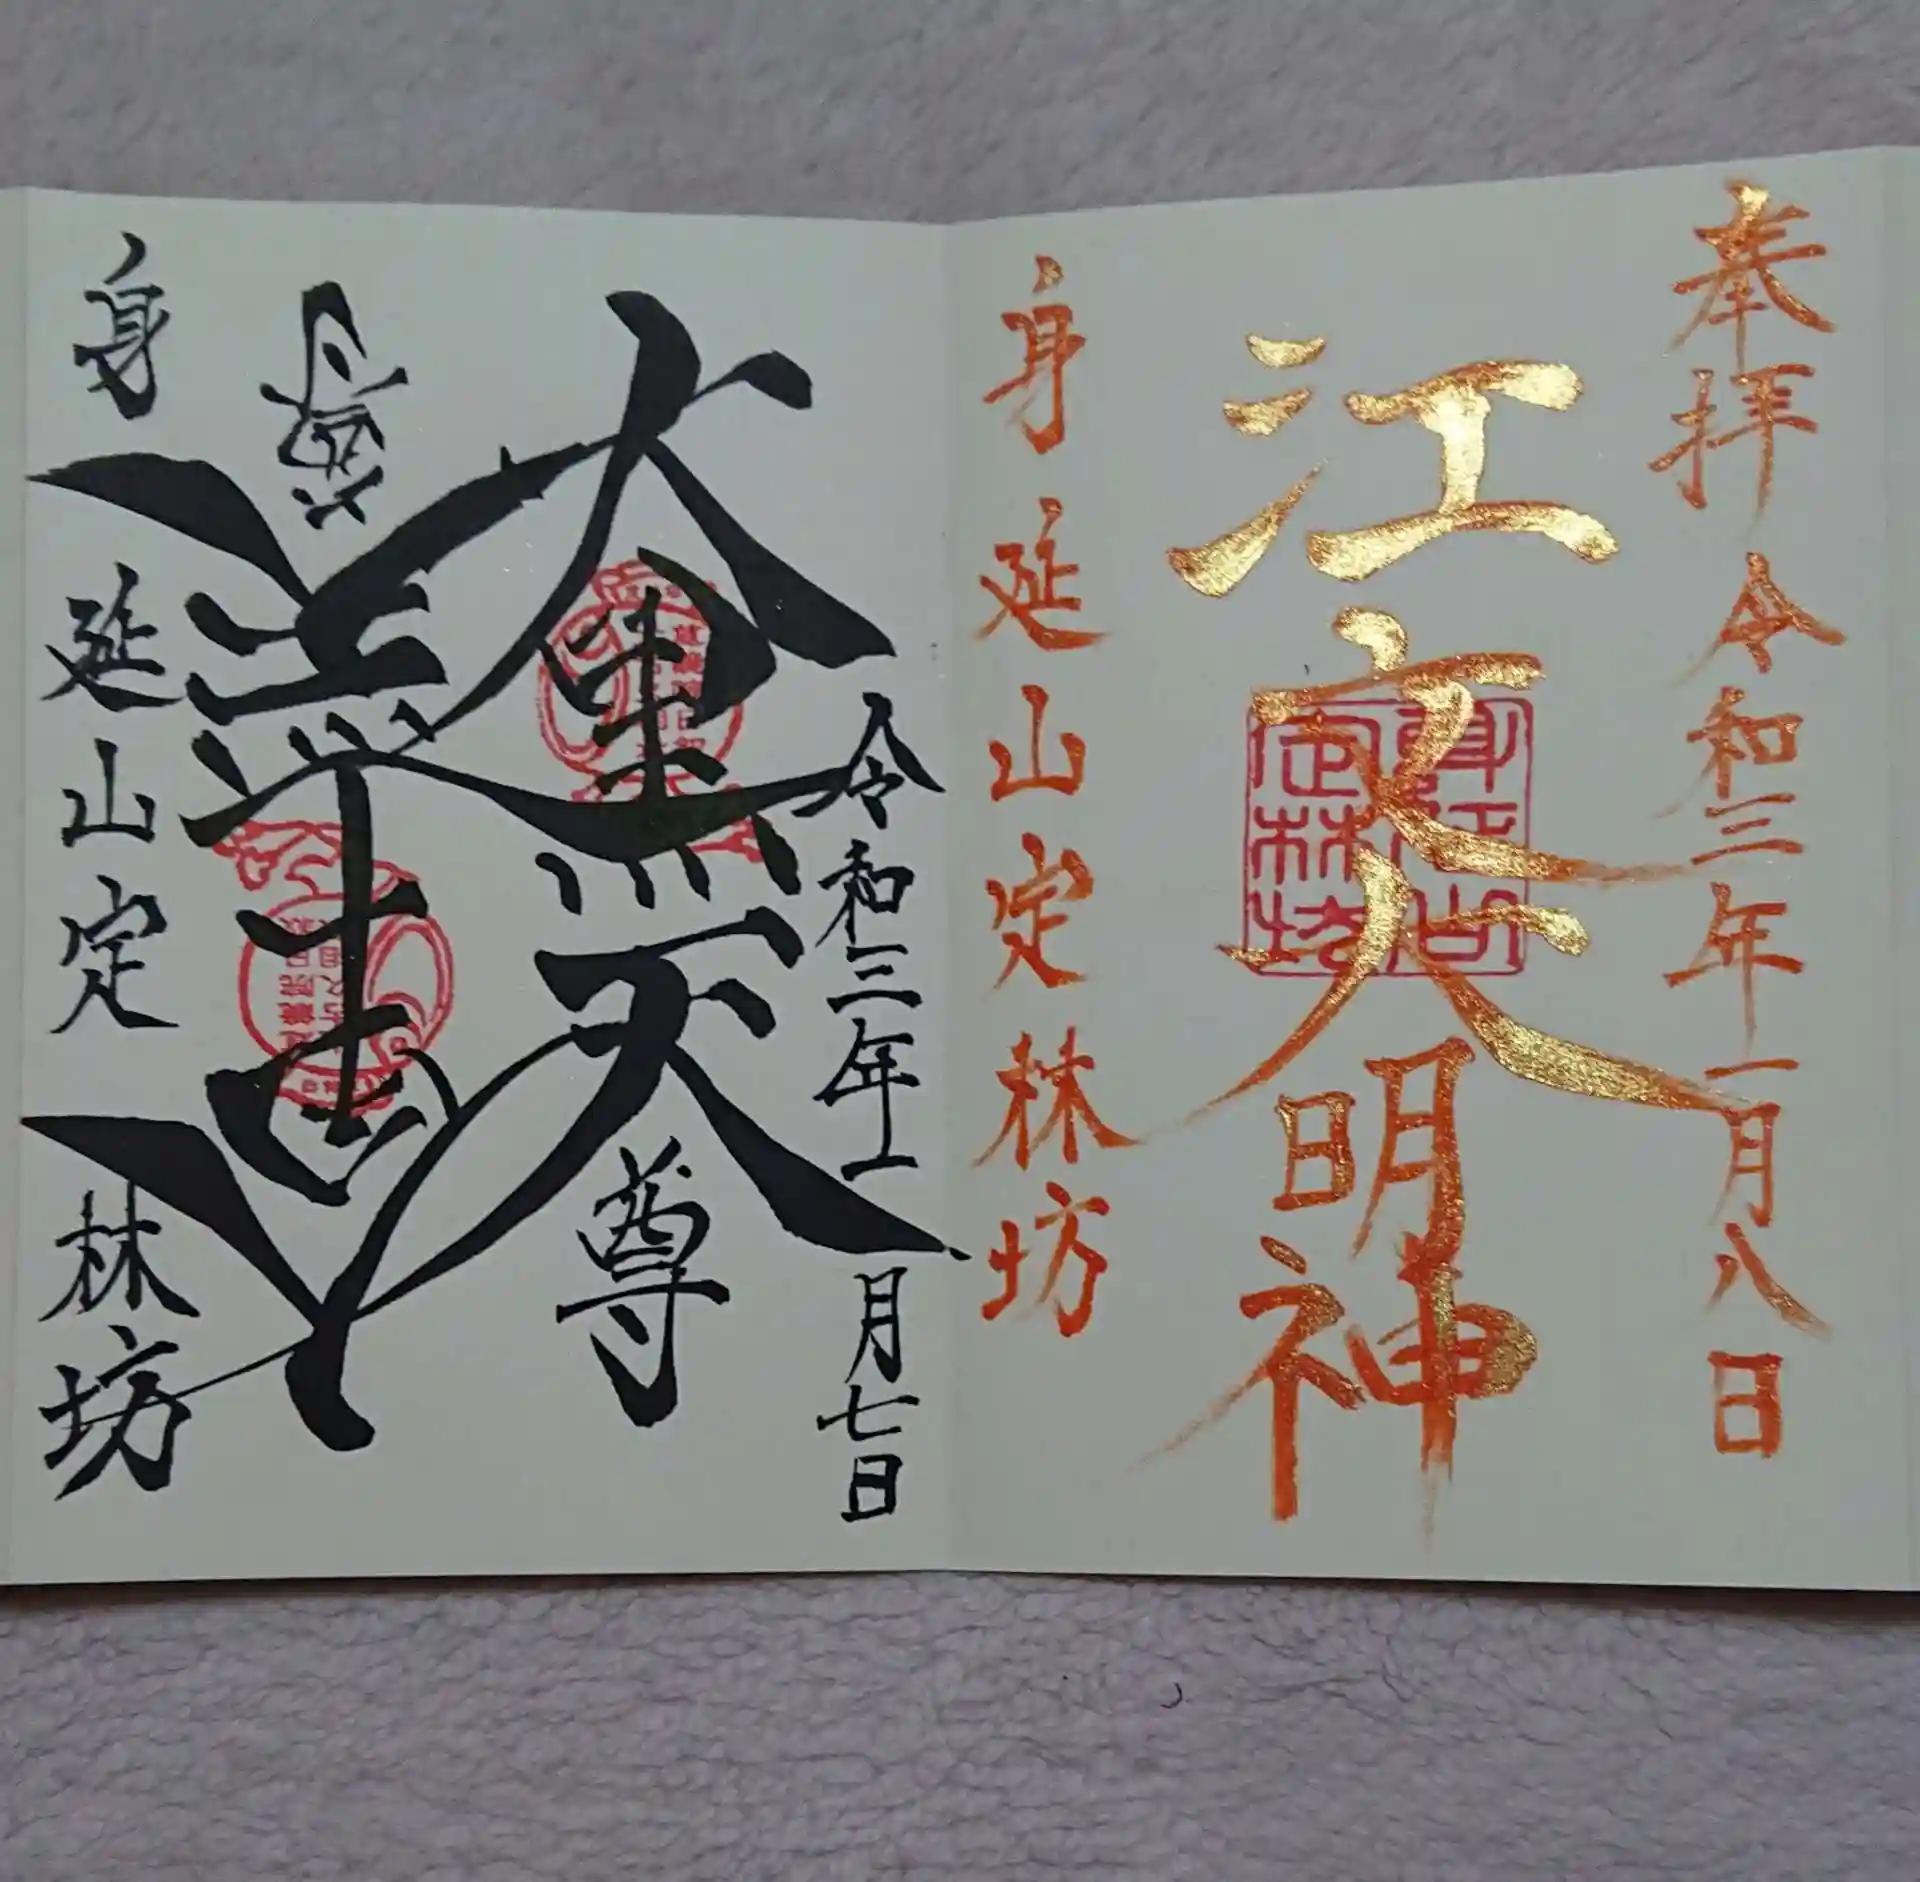 奉拝 令和三年一月八日
江文大明神
身延山定林坊
令和三年一月七日
大黒天尊
大黒天尊
身延山定林坊